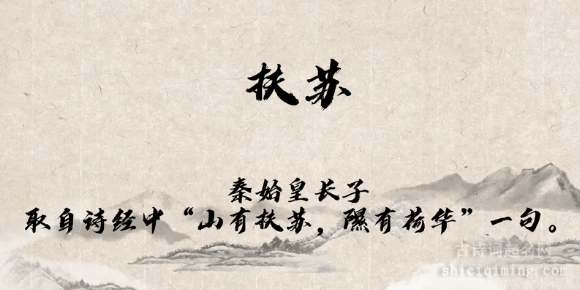 扶苏
秦始皇长子
取自诗经中“山有扶苏，隰有荷华”一句。
古诗词起名网
shiciqiming.com